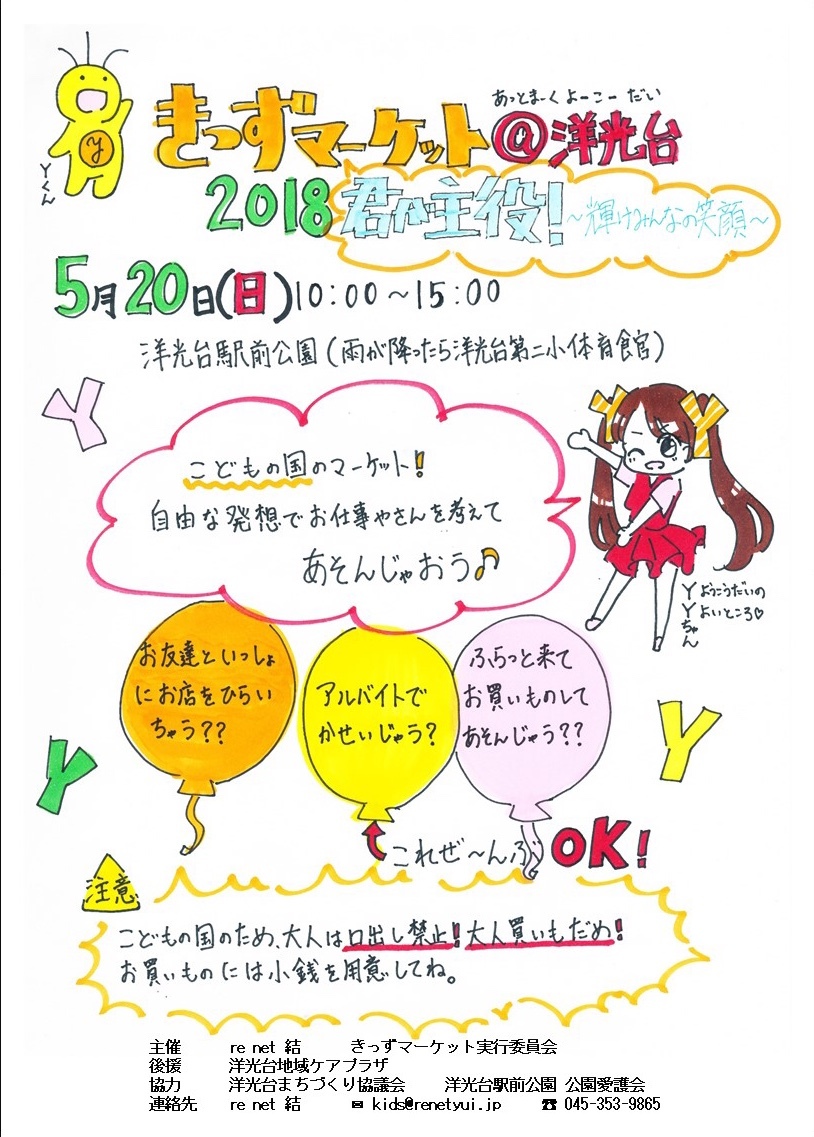 きっずマーケット@洋光台
あっとまーく よーこー だい
Yくん
2018 君が主役! ～輝けみんなの笑顔～
5月20日(日)10:00～15:00
洋光台駅前公園(雨が降ったら洋光台第二小体育館)
Y
こどもの国のマーケット!
自由な発想でお仕事やさんを考えて
あそんじゃおう♪
YYちゃん
ようこうだいの
よいところ♡
お友達といっしょ
にお店をひらい
ちゃう??
アルバイトで
かせいじゃう?
ふらっと来て
お買いものして
あそんじゃう??
Y
Y
これぜ〜んぶ OK!
注意
こどもの国のため、大人は口出し禁止!大人買いもだめ!
お買いものには小銭を用意してね。
主催 re net 結 きっずマーケット実行委員会
後援 洋光台地域ケアプラザ
協力 洋光台まちづくり協議会 洋光台駅前公園 公園愛護会
連絡先 re net 結 ✉ kids@renetyui.jp ☎ 045-353-9865